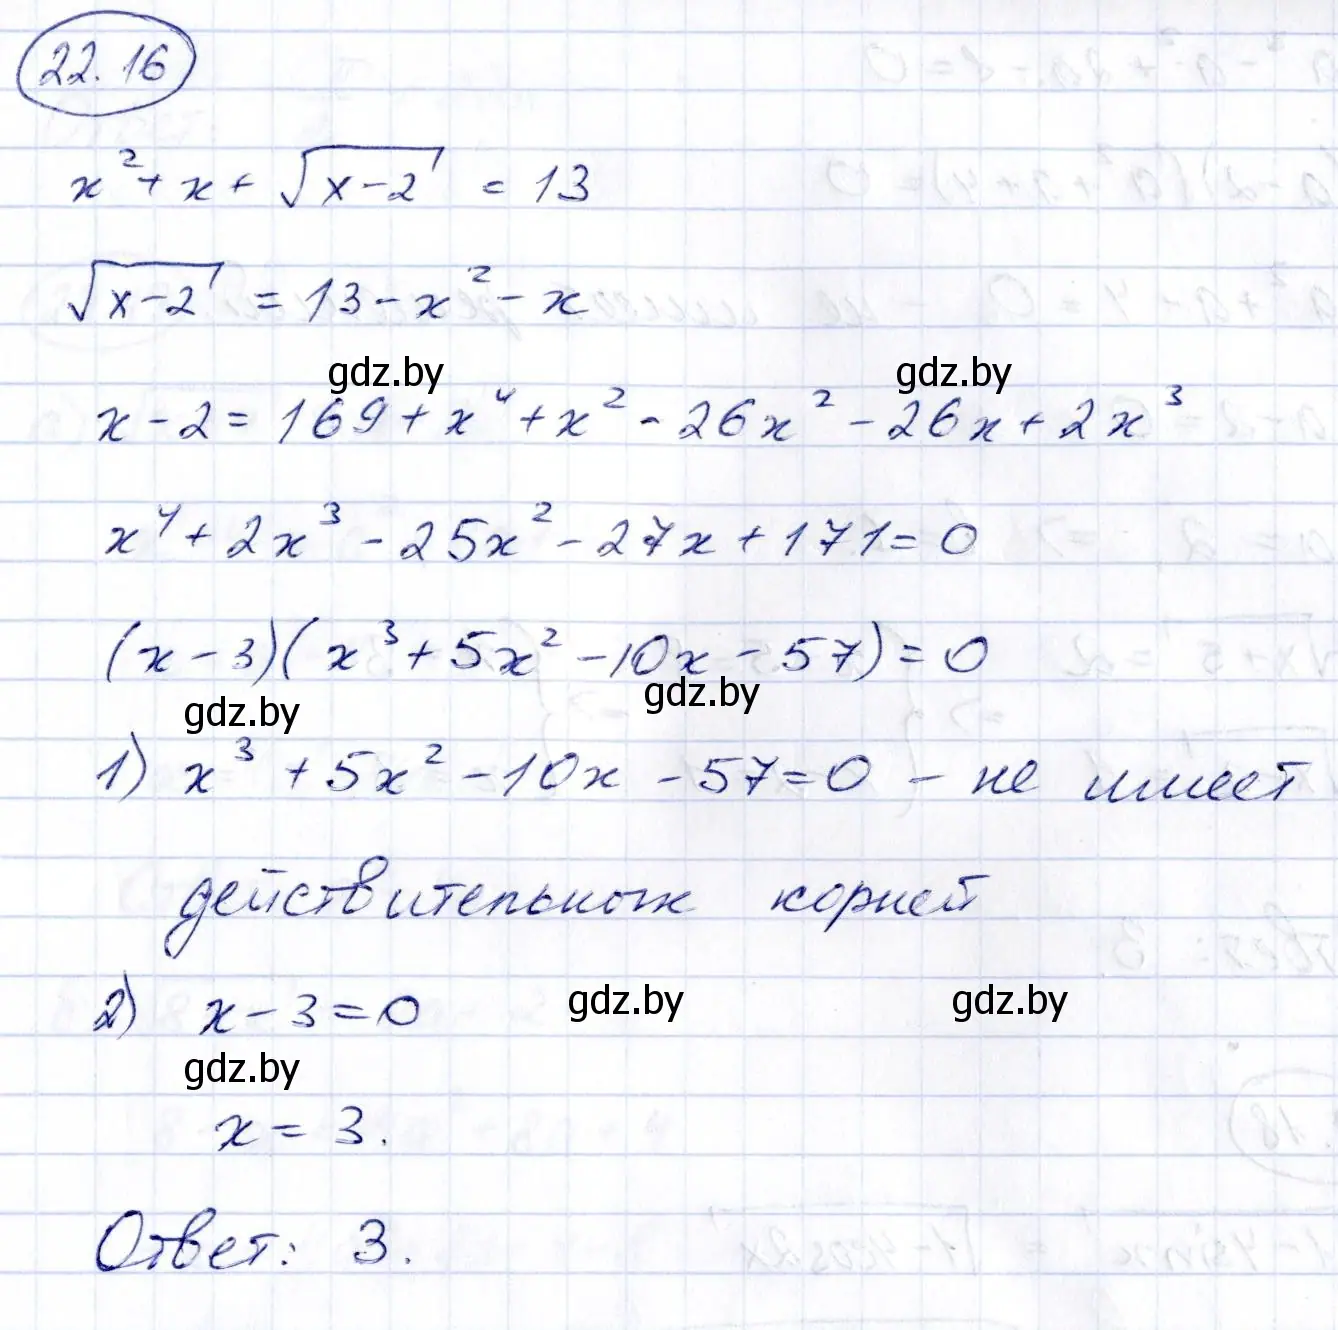 22.16
x² + x + √(x-2) = 13
√(x-2) = 13 - x² - x
gdz.by gdz.by
x - 2 = 169 + x⁴ + x² - 26x² - 26x + 2x³
x⁴ + 2x³ - 25x² - 27x + 171 = 0
(x - 3)(x³ + 5x² - 10x - 57) = 0
gdz.by gdz.by
1) x³ + 5x² - 10x - 57 = 0 - не имеет
действительных корней
2) x - 3 = 0
gdz.by gdz.by
gdz.by
x = 3.
Ответ: 3.